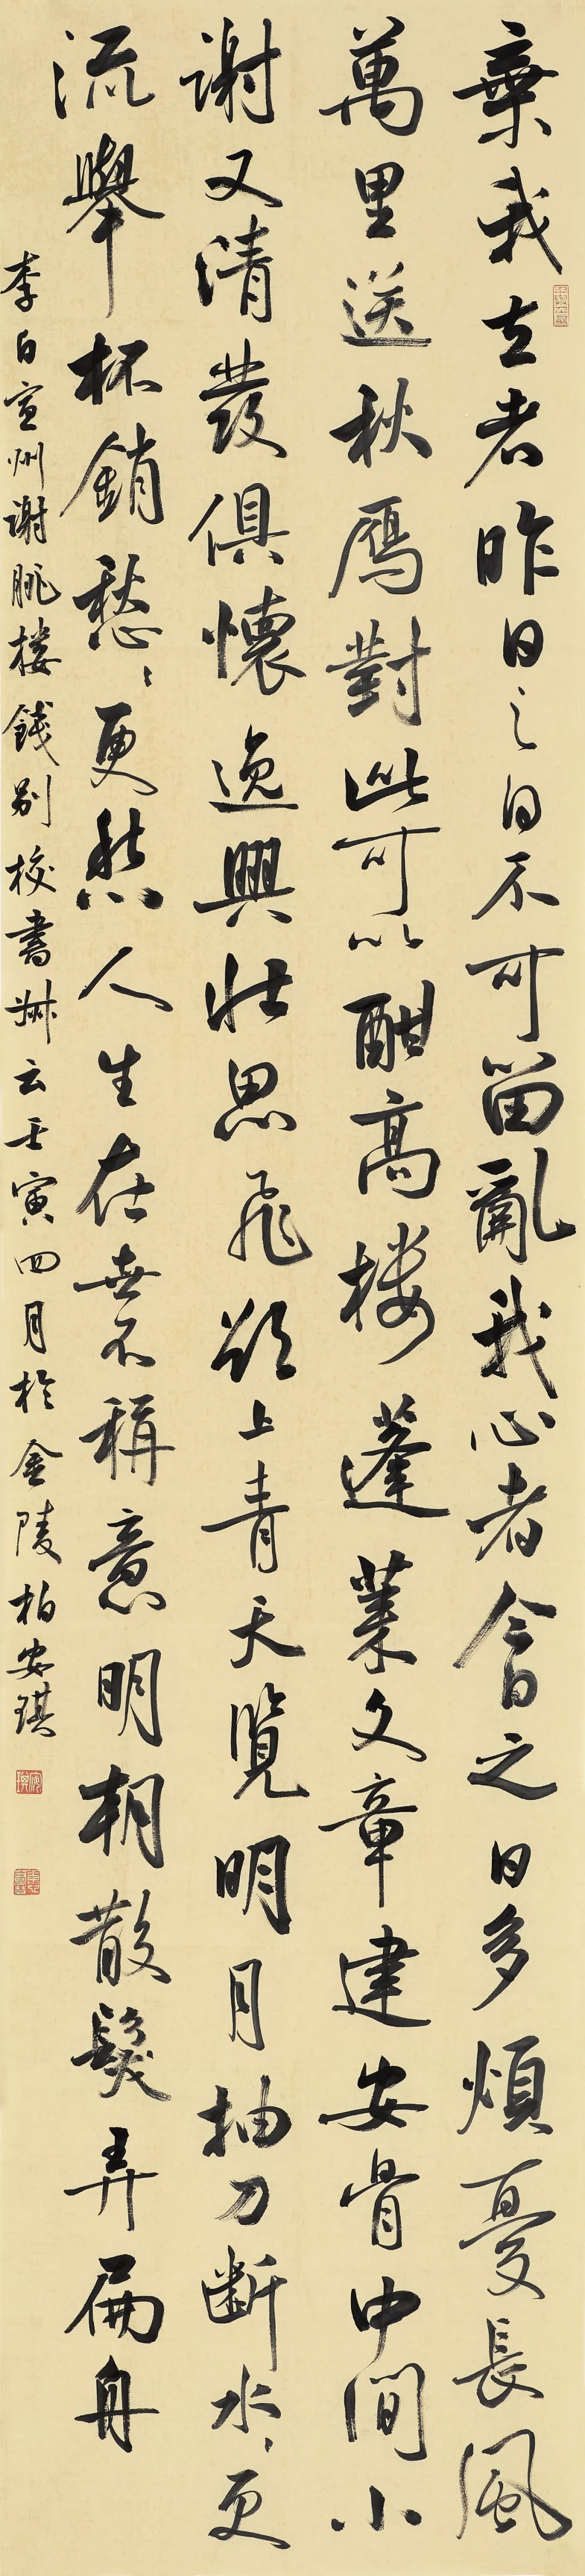 棄我去者昨日之日不可留亂我心者今日之日多煩憂長風
萬里送秋鴈對此可以酣高樓蓬萊文章建安骨中間小
謝又清發俱懷逸興壯思飛欲上青天覽明月抽刀斷水〻更
流舉杯銷愁〻更愁人生在世不稱意明朝散髮弄扁舟
李白宣州謝朓樓餞別校書叔云壬寅四月於金陵柏安琪